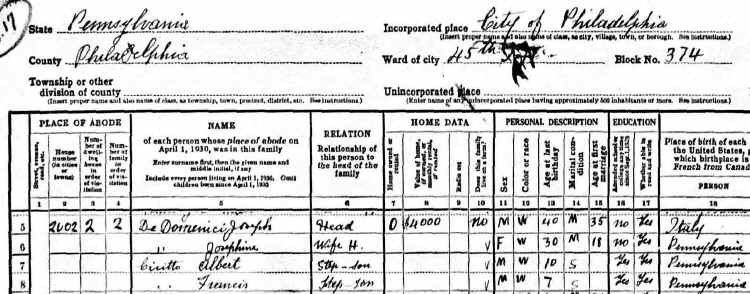 17
State Pennsylvania Incorporated place City of Philadelphia
(Insert proper name and also name of class, as city, village, town, or borough. See instructions.)
County Philadelphia Ward of city 45th Block No. 374
Township or other
division of county
(Insert proper name and also name of class, as township, town, precinct, district, etc. See instructions.)
Unincorporated place
(Enter name of any unincorporated place having approximately 500 inhabitants or more. See instructions.)
PLACE OF ABODE NAME RELATION HOME DATA PERSONAL DESCRIPTION EDUCATION
Street, avenue, road, etc.
House number (in cities or towns)
Number of dwelling house in order of visitation
Number of family in order of visitation
of each person whose place of abode on
April 1, 1930, was in this family
Enter surname first, then the given name and
middle initial, if any
Include every person living on April 1, 1930. Omit
children born since April 1, 1930
Relationship of this person to the head of the family
Home owned or rented
Value of home, if owned, or monthly rental, if rented
Radio set
Does this family live on a farm?
Sex
Color or race
Age at last birthday
Marital condition
Age at first marriage
Attended school or college any time since Sept. 1, 1929
Whether able to read and write
Place of birth of each
the United States,
which birthplace is
French from Canad
PERSON
1 2 3 4 5 6 7 8 9 10 11 12 13 14 15 16 17 18
5 2002 2 2 De Domenici Joseph Head O $4000 no M W 40 M 35 no Yes Italy
6 " Josephine Wife H. V F W 30 M 18 no Yes Pennsylvania
7 Ciritto Albert Step-son V M W 10 S Yes Yes Pennsylvania
8 " Francis Step-son V M W 7 S Yes Yes Pennsylvania